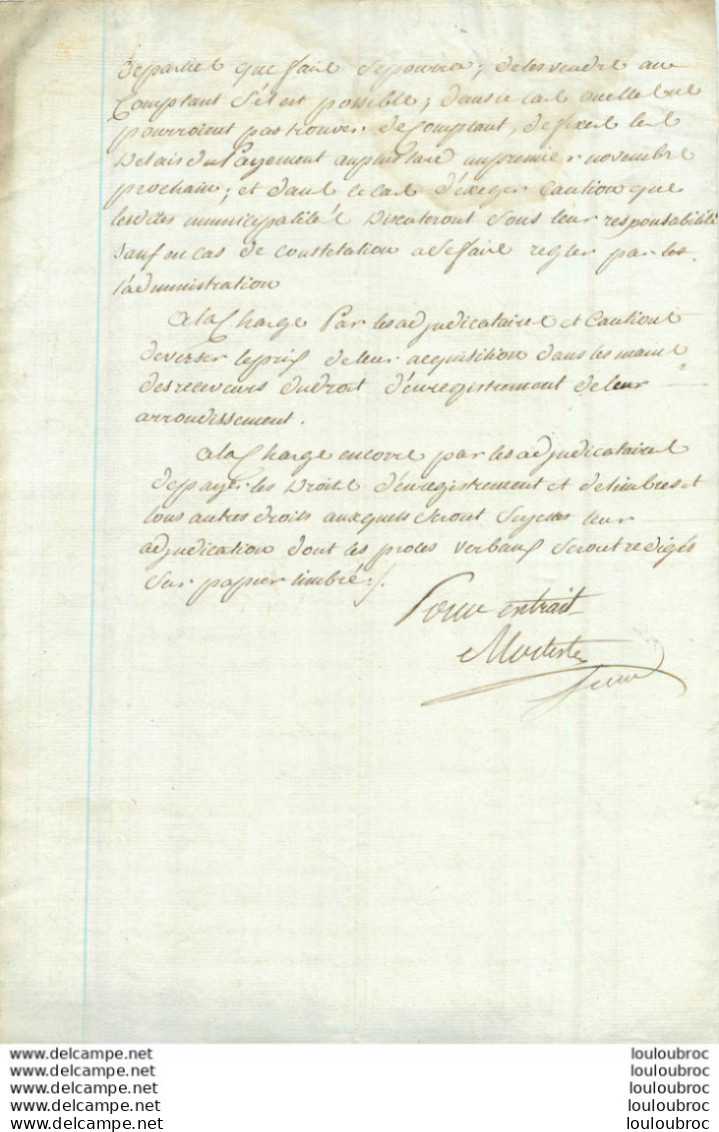 de parties que faire se pourra ; de les vendre au
Comptant s'il est possible ; dans le cas ou elles ne
pourroient pas trouver de Comptant, de fixer les
Delais du Payement au plus tard au premier novembre
prochain ; et dans ce cas d'exiger Caution que
lesdites municipalités Discuteront sous leur responsabilité
sauf en cas de contestation a se faire regler par les
l'administration
a la Charge Par les adjudicataires et Cautions
de verser le prix de leur acquisition dans les mains
des receveurs du droit d'enregistrement de leur
arrondissement.
a la Charge encore par les adjudicataires
de payer les Droits d'enregistrement et de timbres et
tous autres droits auxquels seront sujettes leur
adjudication dont les procès verbaux seront redigés
sur papier timbré ./.
Pour extrait
www.delcampe.net louloubroc
www.delcampe.net louloubroc
www.delcampe.net louloubroc
www.delcampe.net louloubroc
www.delcampe.net louloubroc